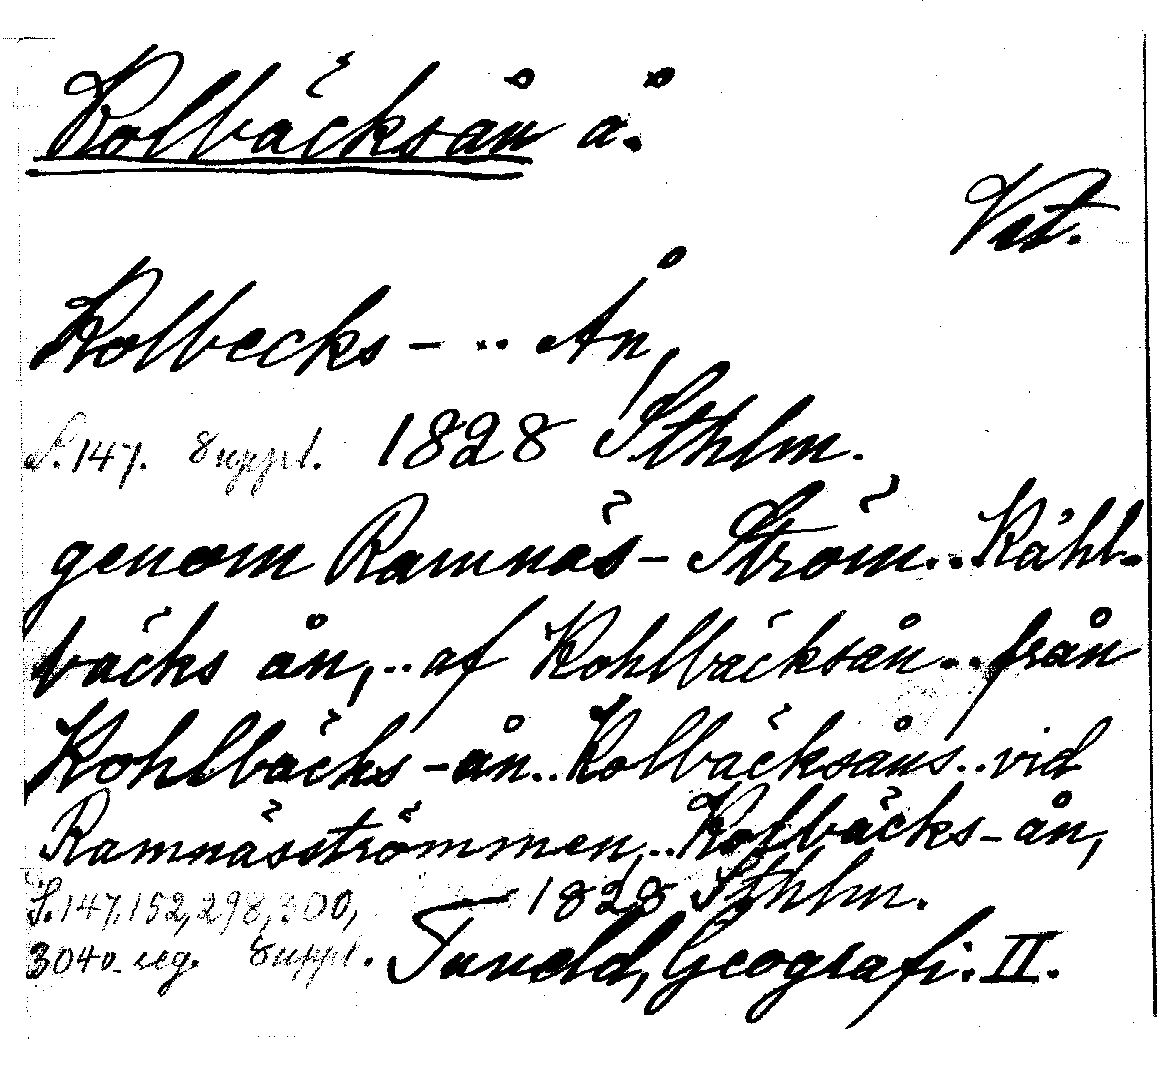 Kolbäcksån å.
Vst.
Kolbecks- .. Ån,
S. 147. Suppl. 1828 Sthlm.
genom Ramnäs-Ström .. Kåhl-
bäcks ån, .. af Kohlbäcksån .. från
Kohlbäcks-ån .. Kolbäcksåns .. vid
Ramnäsströmmen, .. Kolbäcks-ån,
S. 147, 152, 298, 300, 1828 Sthlm.
304 o. reg. Suppl. Tuneld, Geografi. II.